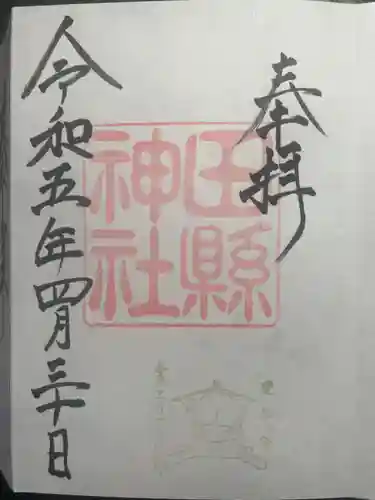 奉拝
田縣
神社
令和五年四月三十日